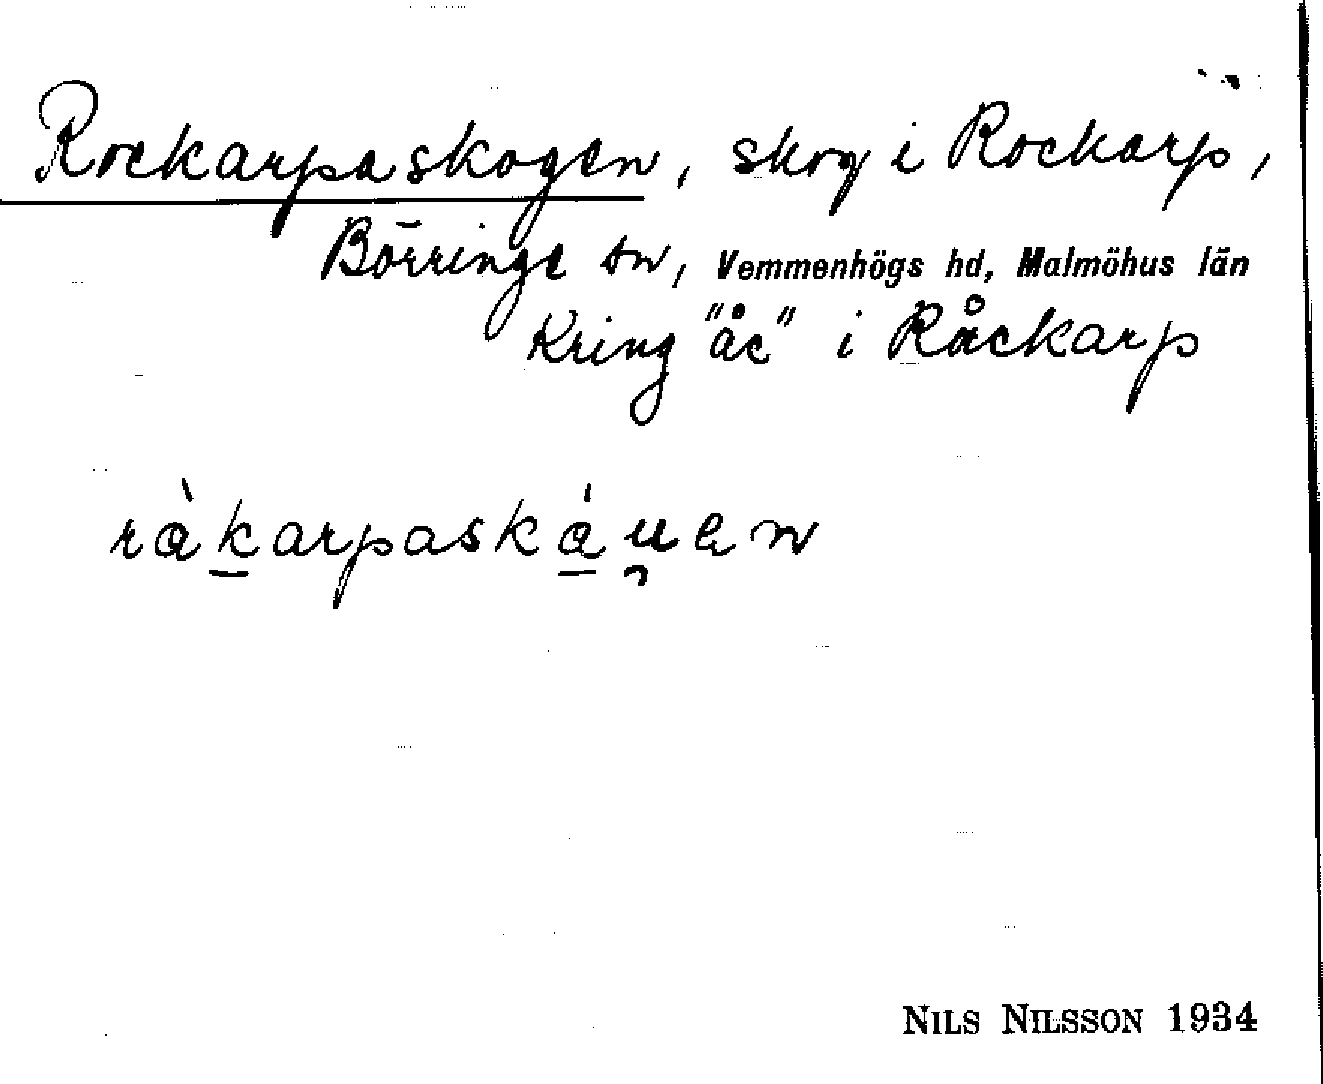 Rockarpaskogen, skog i Rockarp,
Börringe sn, Vemmenhögs hd, Malmöhus län
Kring "åc" i Råckarp
ràkarpaskáuen
NILS NILSSON 1934